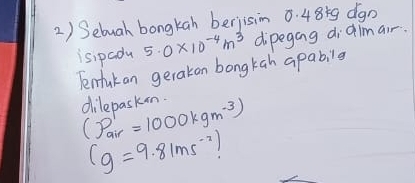 2) Sebuah bongkah berjisim 0.48kg dgn
isipadu 5.0 × 10⁻⁴ m³ dipegang di dlm air.
Tentukan gerakan bongkah apabila
dilepaskan.
(ρair = 1000 kg m⁻³)
(g = 9.81 ms⁻²)!